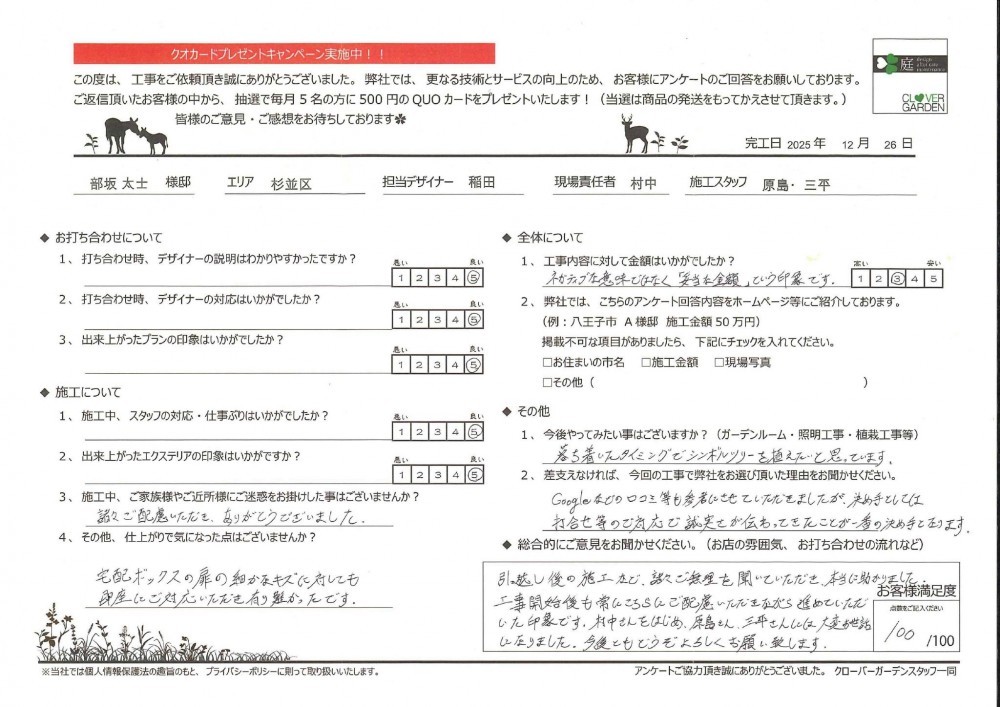 クオカードプレゼントキャンペーン実施中！！
この度は、工事をご依頼頂き誠にありがとうございました。弊社では、更なる技術とサービスの向上のため、お客様にアンケートのご回答をお願いしております。
ご返信頂いたお客様の中から、抽選で毎月５名の方に500円のQUOカードをプレゼントいたします！（当選は商品の発送をもってかえさせて頂きます。）
皆様のご意見・ご感想をお待ちしております
庭
CLOVER
GARDEN
完工日 2025年 12月 26日
部坂 太士 様邸 エリア 杉並区 担当デザイナー 稲田 現場責任者 村中 施工スタッフ 原島・三平
◆ お打ち合わせについて
１、打ち合わせ時、デザイナーの説明はわかりやすかったですか？
悪い 良い
1 2 3 4 5
２、打ち合わせ時、デザイナーの対応はいかがでしたか？
悪い 良い
1 2 3 4 5
３、出来上がったプランの印象はいかがでしたか？
悪い 良い
1 2 3 4 5
◆ 施工について
１、施工中、スタッフの対応・仕事ぶりはいかがでしたか？
悪い 良い
1 2 3 4 5
２、出来上がったエクステリアの印象はいかがですか？
悪い 良い
1 2 3 4 5
３、施工中、ご家族様やご近所様にご迷惑をお掛けした事はございませんか？
諸々ご配慮いただき、ありがとうございました。
４、その他、仕上がりで気になった点はございませんか？
宅配ボックスの扉の細かなキズに対しても
即座にご対応いただき有り難かったです。
◆ 全体について
１、工事内容に対して金額はいかがでしたか？
高い 安い
ネガティブな意味ではなく「妥当な金額」という印象です。
1 2 3 4 5
２、弊社では、こちらのアンケート回答内容をホームページ等にご紹介しております。
（例：八王子市 A様邸 施工金額50万円）
掲載不可な項目がありましたら、下記にチェックを入れてください。
□お住まいの市名 □施工金額 □現場写真
□その他（ ）
◆ その他
１、今後やってみたい事はございますか？（ガーデンルーム・照明工事・植栽工事等）
落ち着いたタイミングでシンボルツリーを植えたいと思っています。
２、差支えなければ、今回の工事で弊社をお選び頂いた理由をお聞かせください。
Googleなどの口コミ等も参考にさせていただきましたが、決め手としては
打合せ等のご対応で誠実さが伝わってきたことが一番の決め手となります。
◆ 総合的にご意見をお聞かせください。（お店の雰囲気、お打ち合わせの流れなど）
引越し後の施工など、諸々ご無理を聞いていただき、本当に助かりました。
工事開始後も常にこちらにご配慮いただきながら進めていただ
いた印象です。村中さんをはじめ、原島さん、三平さんには大変お世話
になりました。今後ともどうぞよろしくお願い致します。
お客様満足度
点数をご記入ください
100 /100
※当社では個人情報保護法の趣旨のもと、プライバシーポリシーに則って取り扱いいたします。
アンケートご協力頂き誠にありがとうございました。クローバーガーデンスタッフ一同